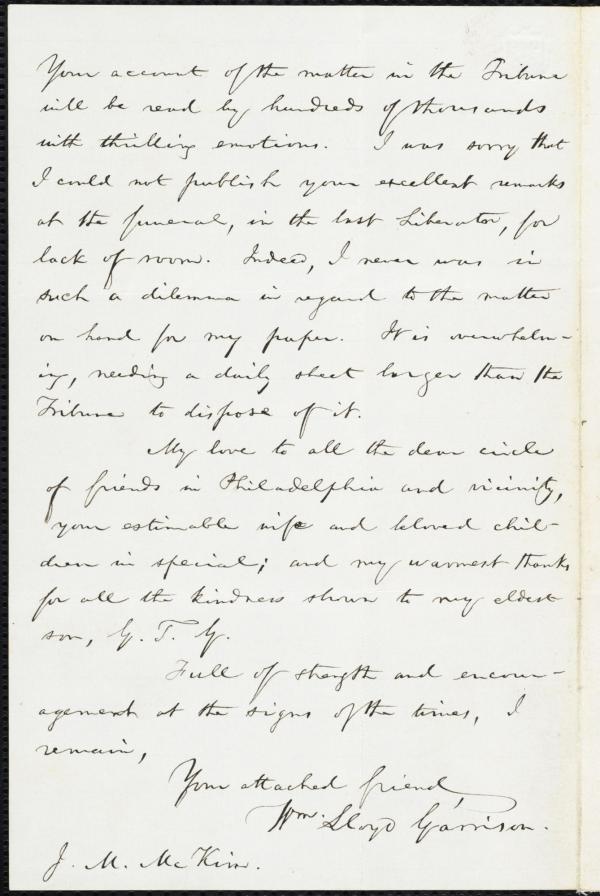 Your account of the matter in the Tribune
will be read by hundreds of thousands
with thrilling emotions. I was sorry that
I could not publish your excellent remarks
at the funeral, in the last Liberator, for
lack of room. Indeed, I never was in
such a dilemma in regard to the matter
on hand for my paper. It is overwhelm-
ing, needing a daily sheet larger than the
Tribune to dispose of it.
My love to all the dear circle
of friends in Philadelphia and vicinity,
your estimable wife and beloved chil-
dren in special; and my warmest thanks
for all the kindness shown to my eldest
son, G. T. G.
Full of strength and encour-
agement at the signs of the times, I
remain,
Your attached friend,
Wm. Lloyd Garrison.
J. M. McKim.